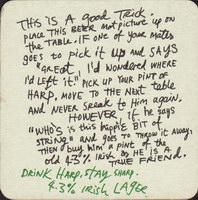 THIS IS A GOOD TRICK.
PLACE THIS BEER MAT PICTURE UP ON
THE TABLE. IF ONE OF YOUR MATES
GOES TO PICK IT UP AND SAYS
"GREAT I'D WONDERED WHERE
I'D LEFT IT!" PICK UP YOUR PINT OF
HARP, MOVE TO THE NEXT TABLE
AND NEVER SPEAK TO HIM AGAIN.
HOWEVER, IF HE SAYS
"WHO'S IS THIS HIPPIE BIT OF
STRING" AND GOES TO THROW IT AWAY,
THEN BUY HIM A PINT OF THE
OLD 4.3% IRISH AS HE IS A
TRUE FRIEND.
DRINK HARP. STAY SHARP.
4.3% IRISH LAGER